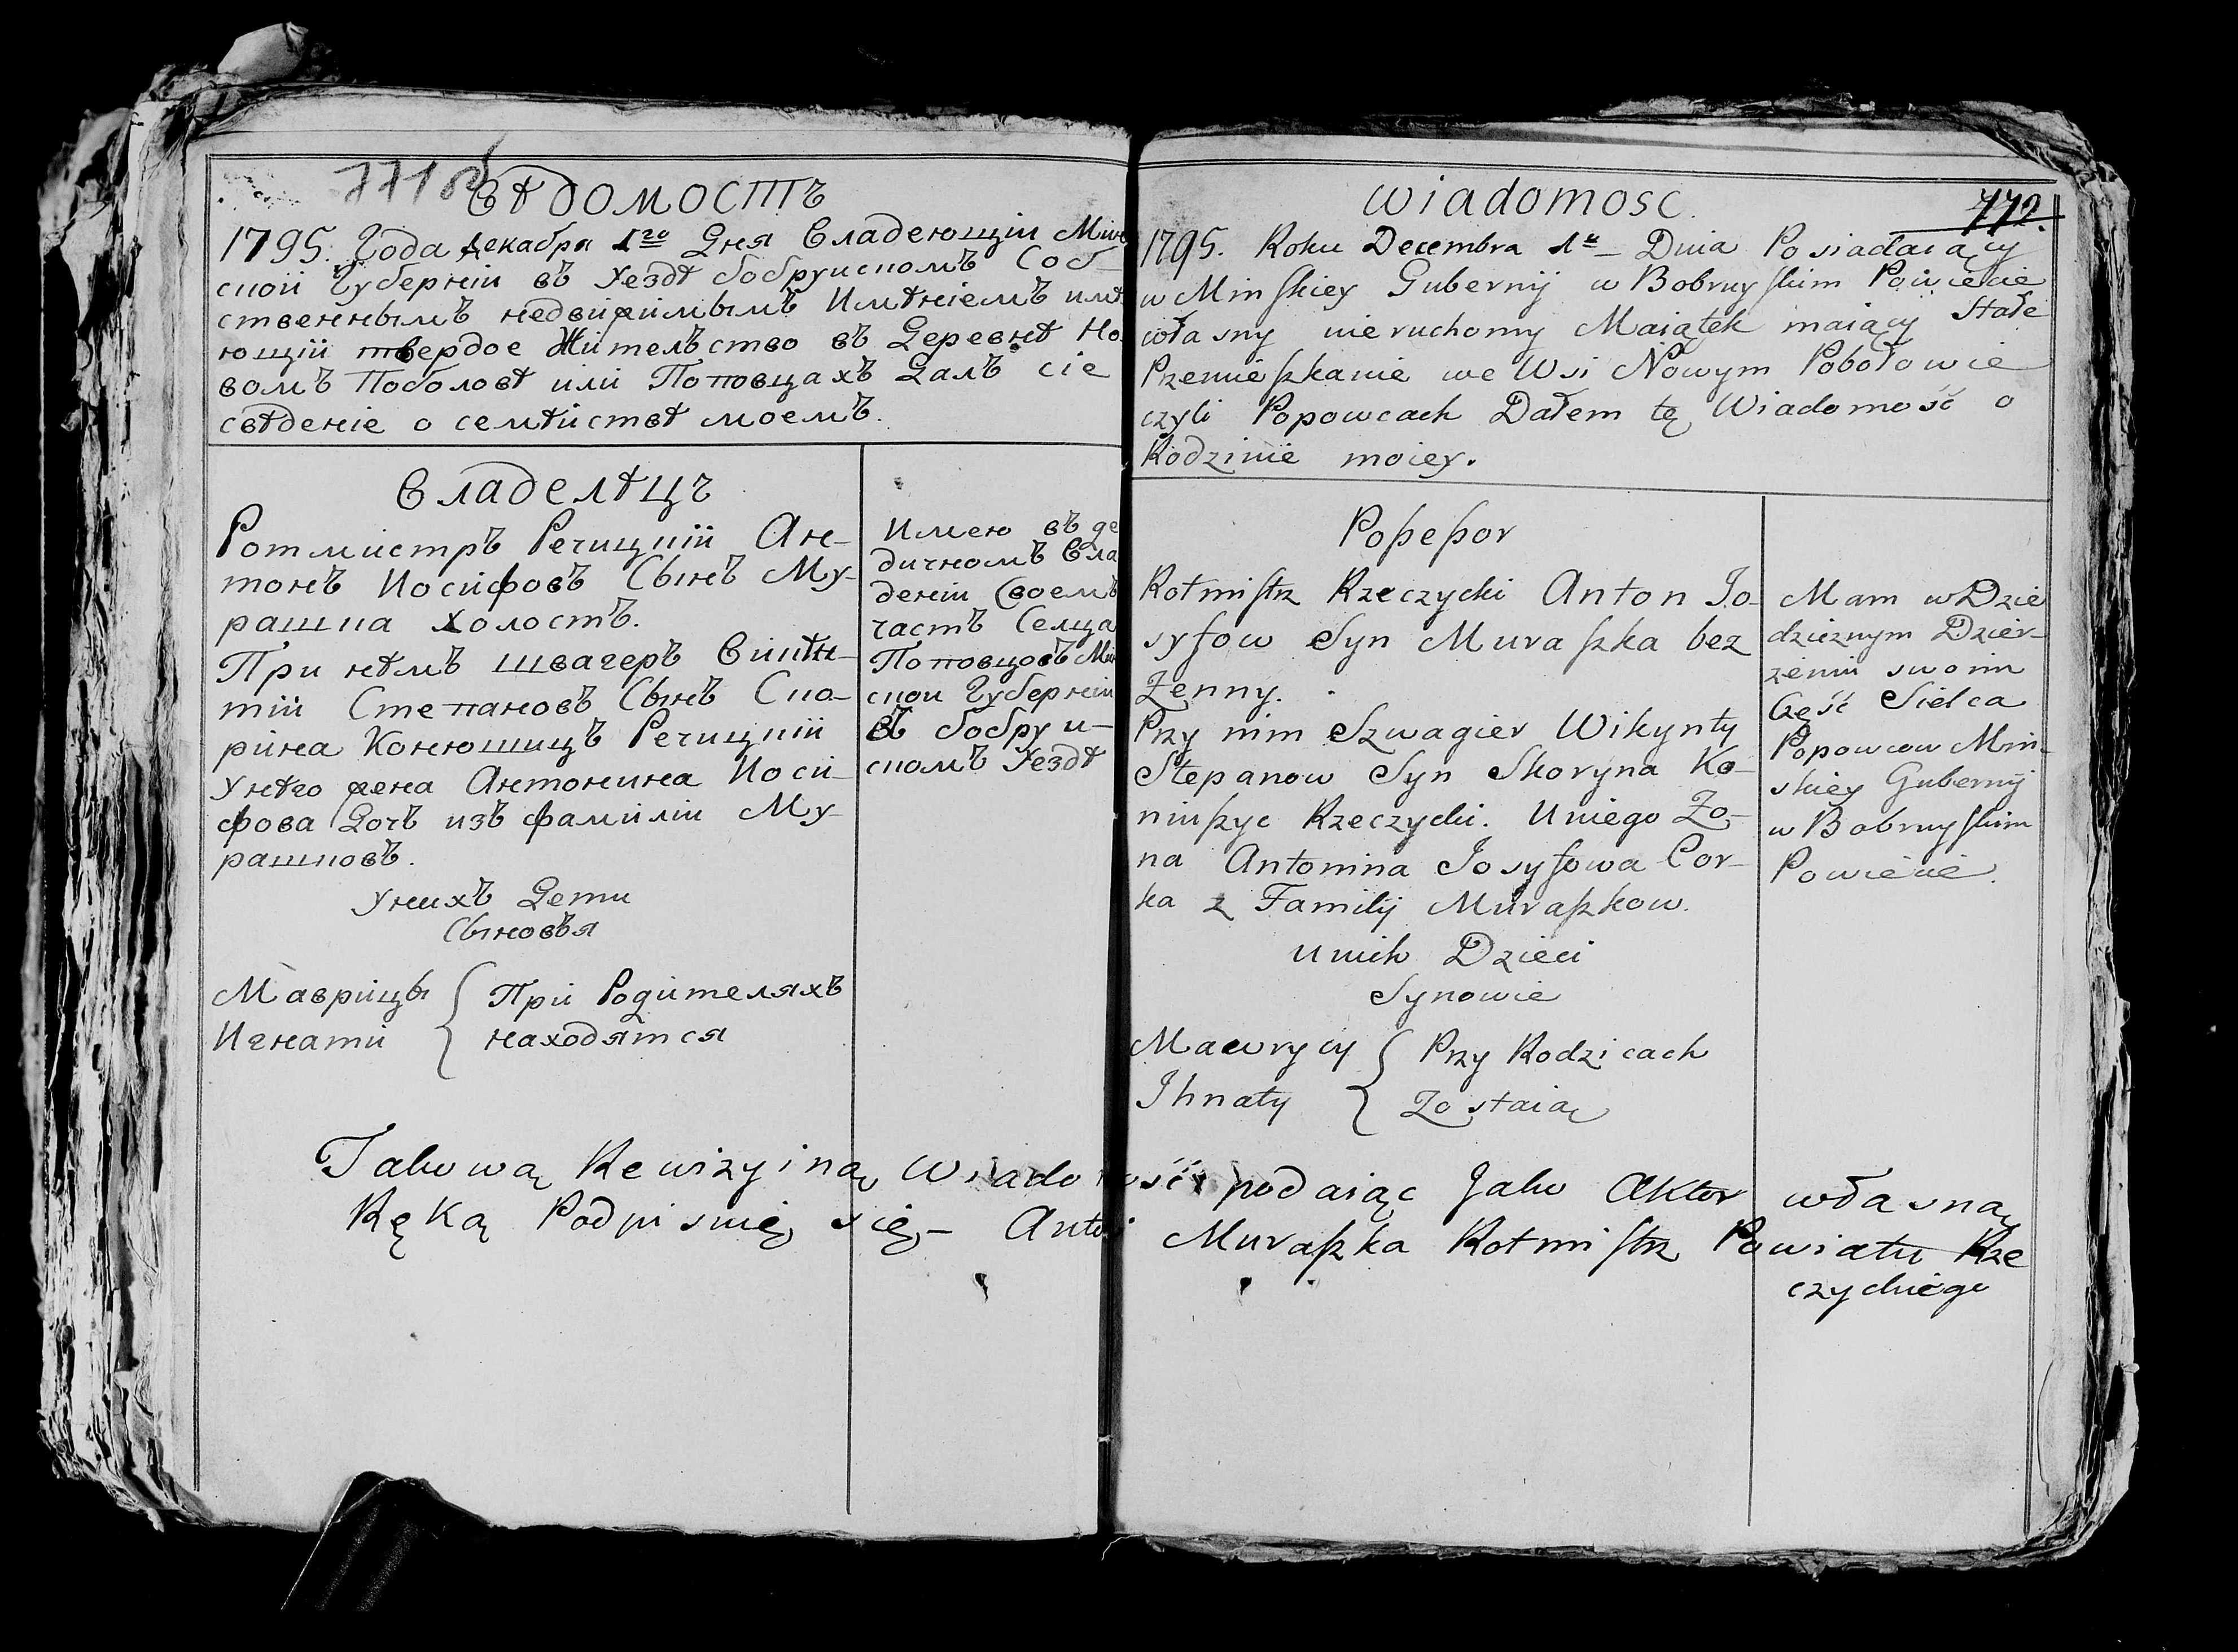 771 об
Вѣдомость
1795. Года Декабря 1го Дня Владеющiи Мин
ской Губернiи въ Уездѣ бобруискомъ Соб-
ственнымъ недвижимымъ Имѣнiемъ имѣ
ющiи твердое Жительство въ Деревнѣ Но-
вомъ Поболовѣ или Поповцахъ Далъ сiе
свѣденiе о семѣйствѣ моемъ.
Владелѣцъ
Ротмистръ Речицкiи Ан-
тонъ Иосифовъ Сынъ Му-
рашка Холостъ.
При нѣмъ швагеръ Викѣн-
тiи Степановъ Сынъ Ско-
рина Конюшицъ Речицкiи
Унѣго жена Антонина Иоси-
фова Дочъ изъ фамилiи Му-
рашковъ.
Унихъ Дети
Сыновья
Маврицы { При Родителяхъ
Игнатiи { находятся
Имею въ де
дичномъ Вла
денiи Своемъ
частъ Селца
Поповцовъ Мин
скои Губернiи
въ бобруи-
скомъ Уездѣ
Wiadomosc.
772.
1795. Roku Decembra 1u Dnia Posiadaiący
w Minskiey Gubernij w Bobruyskim Powiecie
własny nieruchomy Maiątek maiący Stałe
Przemieszkanie we Wsi Nowym Pobołowie
czyli Popowcach Dałem tę Wiadomość o
Rodzinie moiey.
Possessor
Rotmistrz Rzeczycki Anton Jo-
syfow Syn Muraszka bez
Zenny.
Przy nim Szwagier Wikynty
Stepanow Syn Skoryna Ko-
niuszyc Rzeczycki. Uniego Żo-
na Antonina Josyfowa Cor-
ka z Familij Muraszkow.
unich Dzieci
Synowie
Mawrycy { Przy Rodzicach
Ihnaty { Zostaią
Mam w Dzie
dzicznym Dzier-
zeniu swoim
Część Sielca
Popowcow Min-
skiey Gubernij
w Bobruyskim
Powiecie.
Takową Rewizyiną Wiadomość podaiąc Jako Aktor własną
Ręką Podpisuię się - Antoni Muraszka Rotmistrz Powiatu Rze
czyckiego